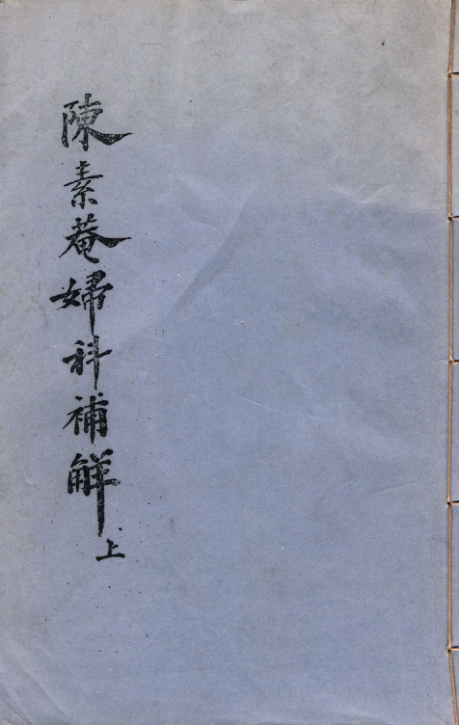 陳素菴婦科補解上